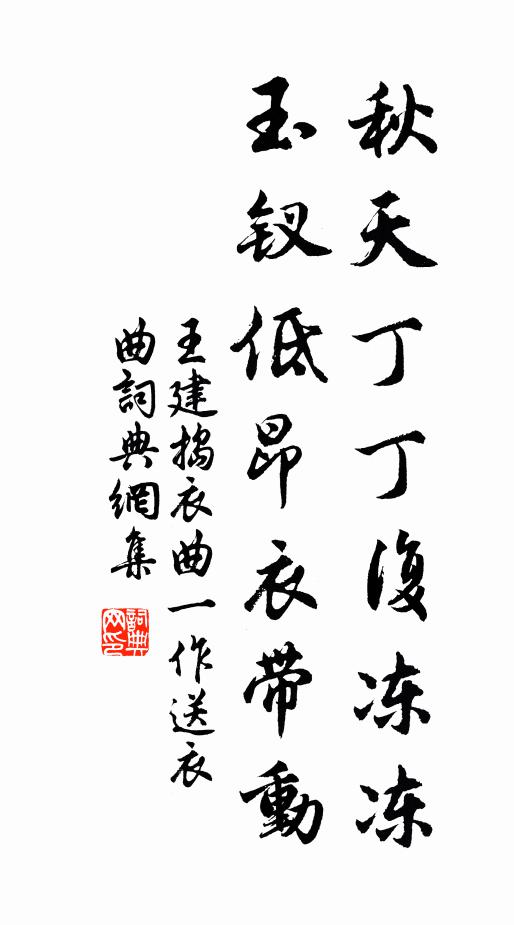 秋天丁丁復冻冻
玉钗低昂衣带動
王建搗衣曲一作送衣
曲詞典網集
詞典
網印